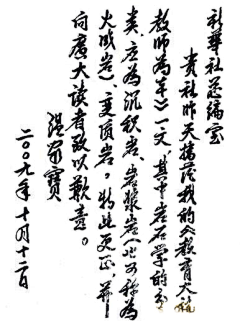 新华社总编室
贵社昨天播发我的《教育大计
教师为本》一文，其中岩石学的分
类应为沉积岩、岩浆岩（也可称为
火成岩）、变质岩。特此更正，并
向广大读者致以歉意。
温家宝
二〇〇九年十月十二日